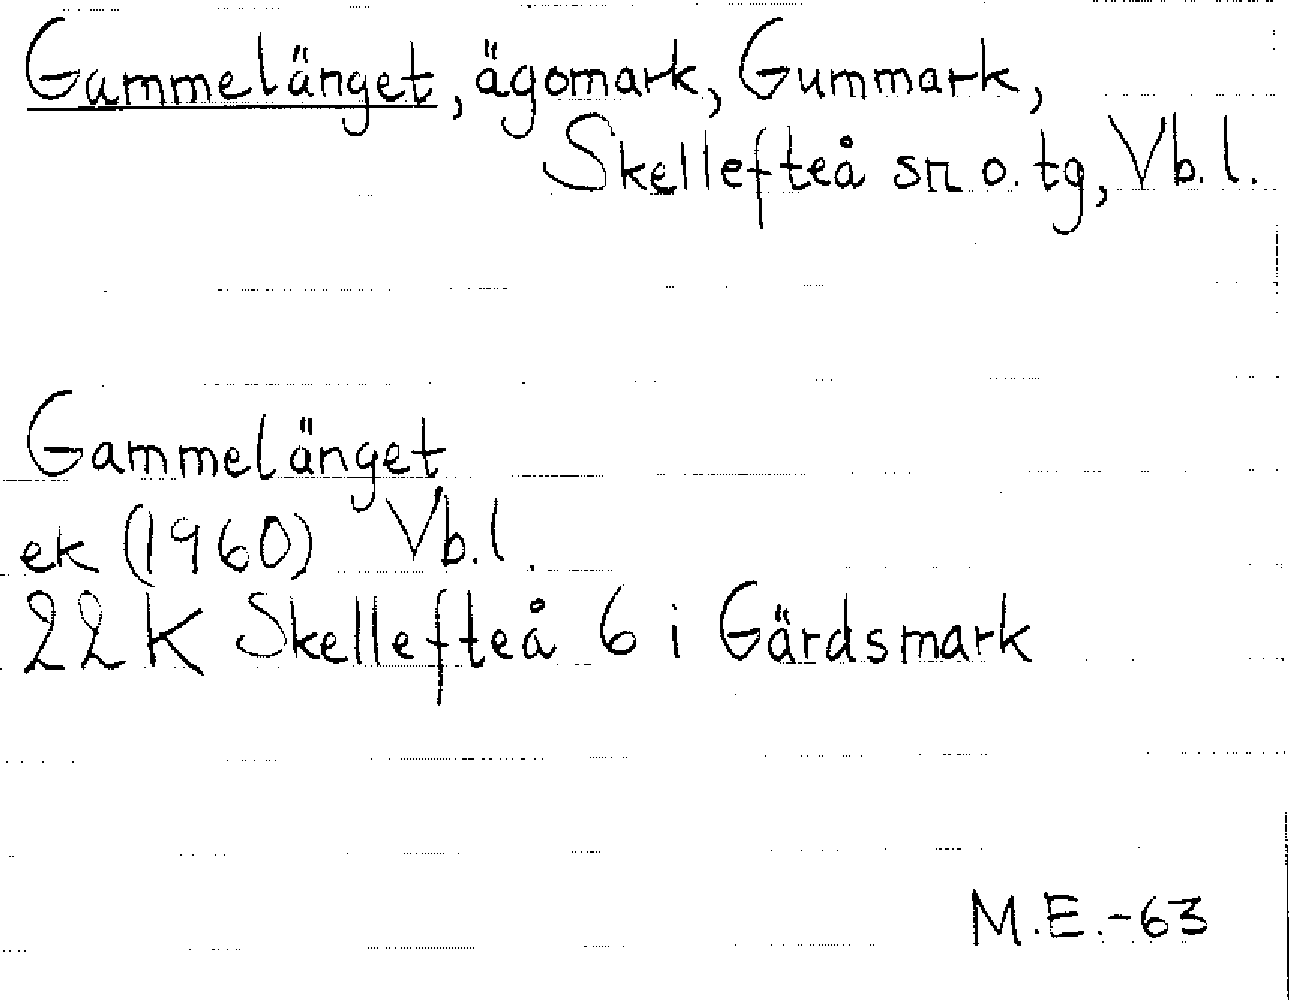 Gammelänget, ägomark, Gummark,
Skellefteå sn o. tg, Vb. l.
Gammelänget
ek (1960) Vb. l.
22 K Skellefteå 6 i Gärdsmark
M.E.-63